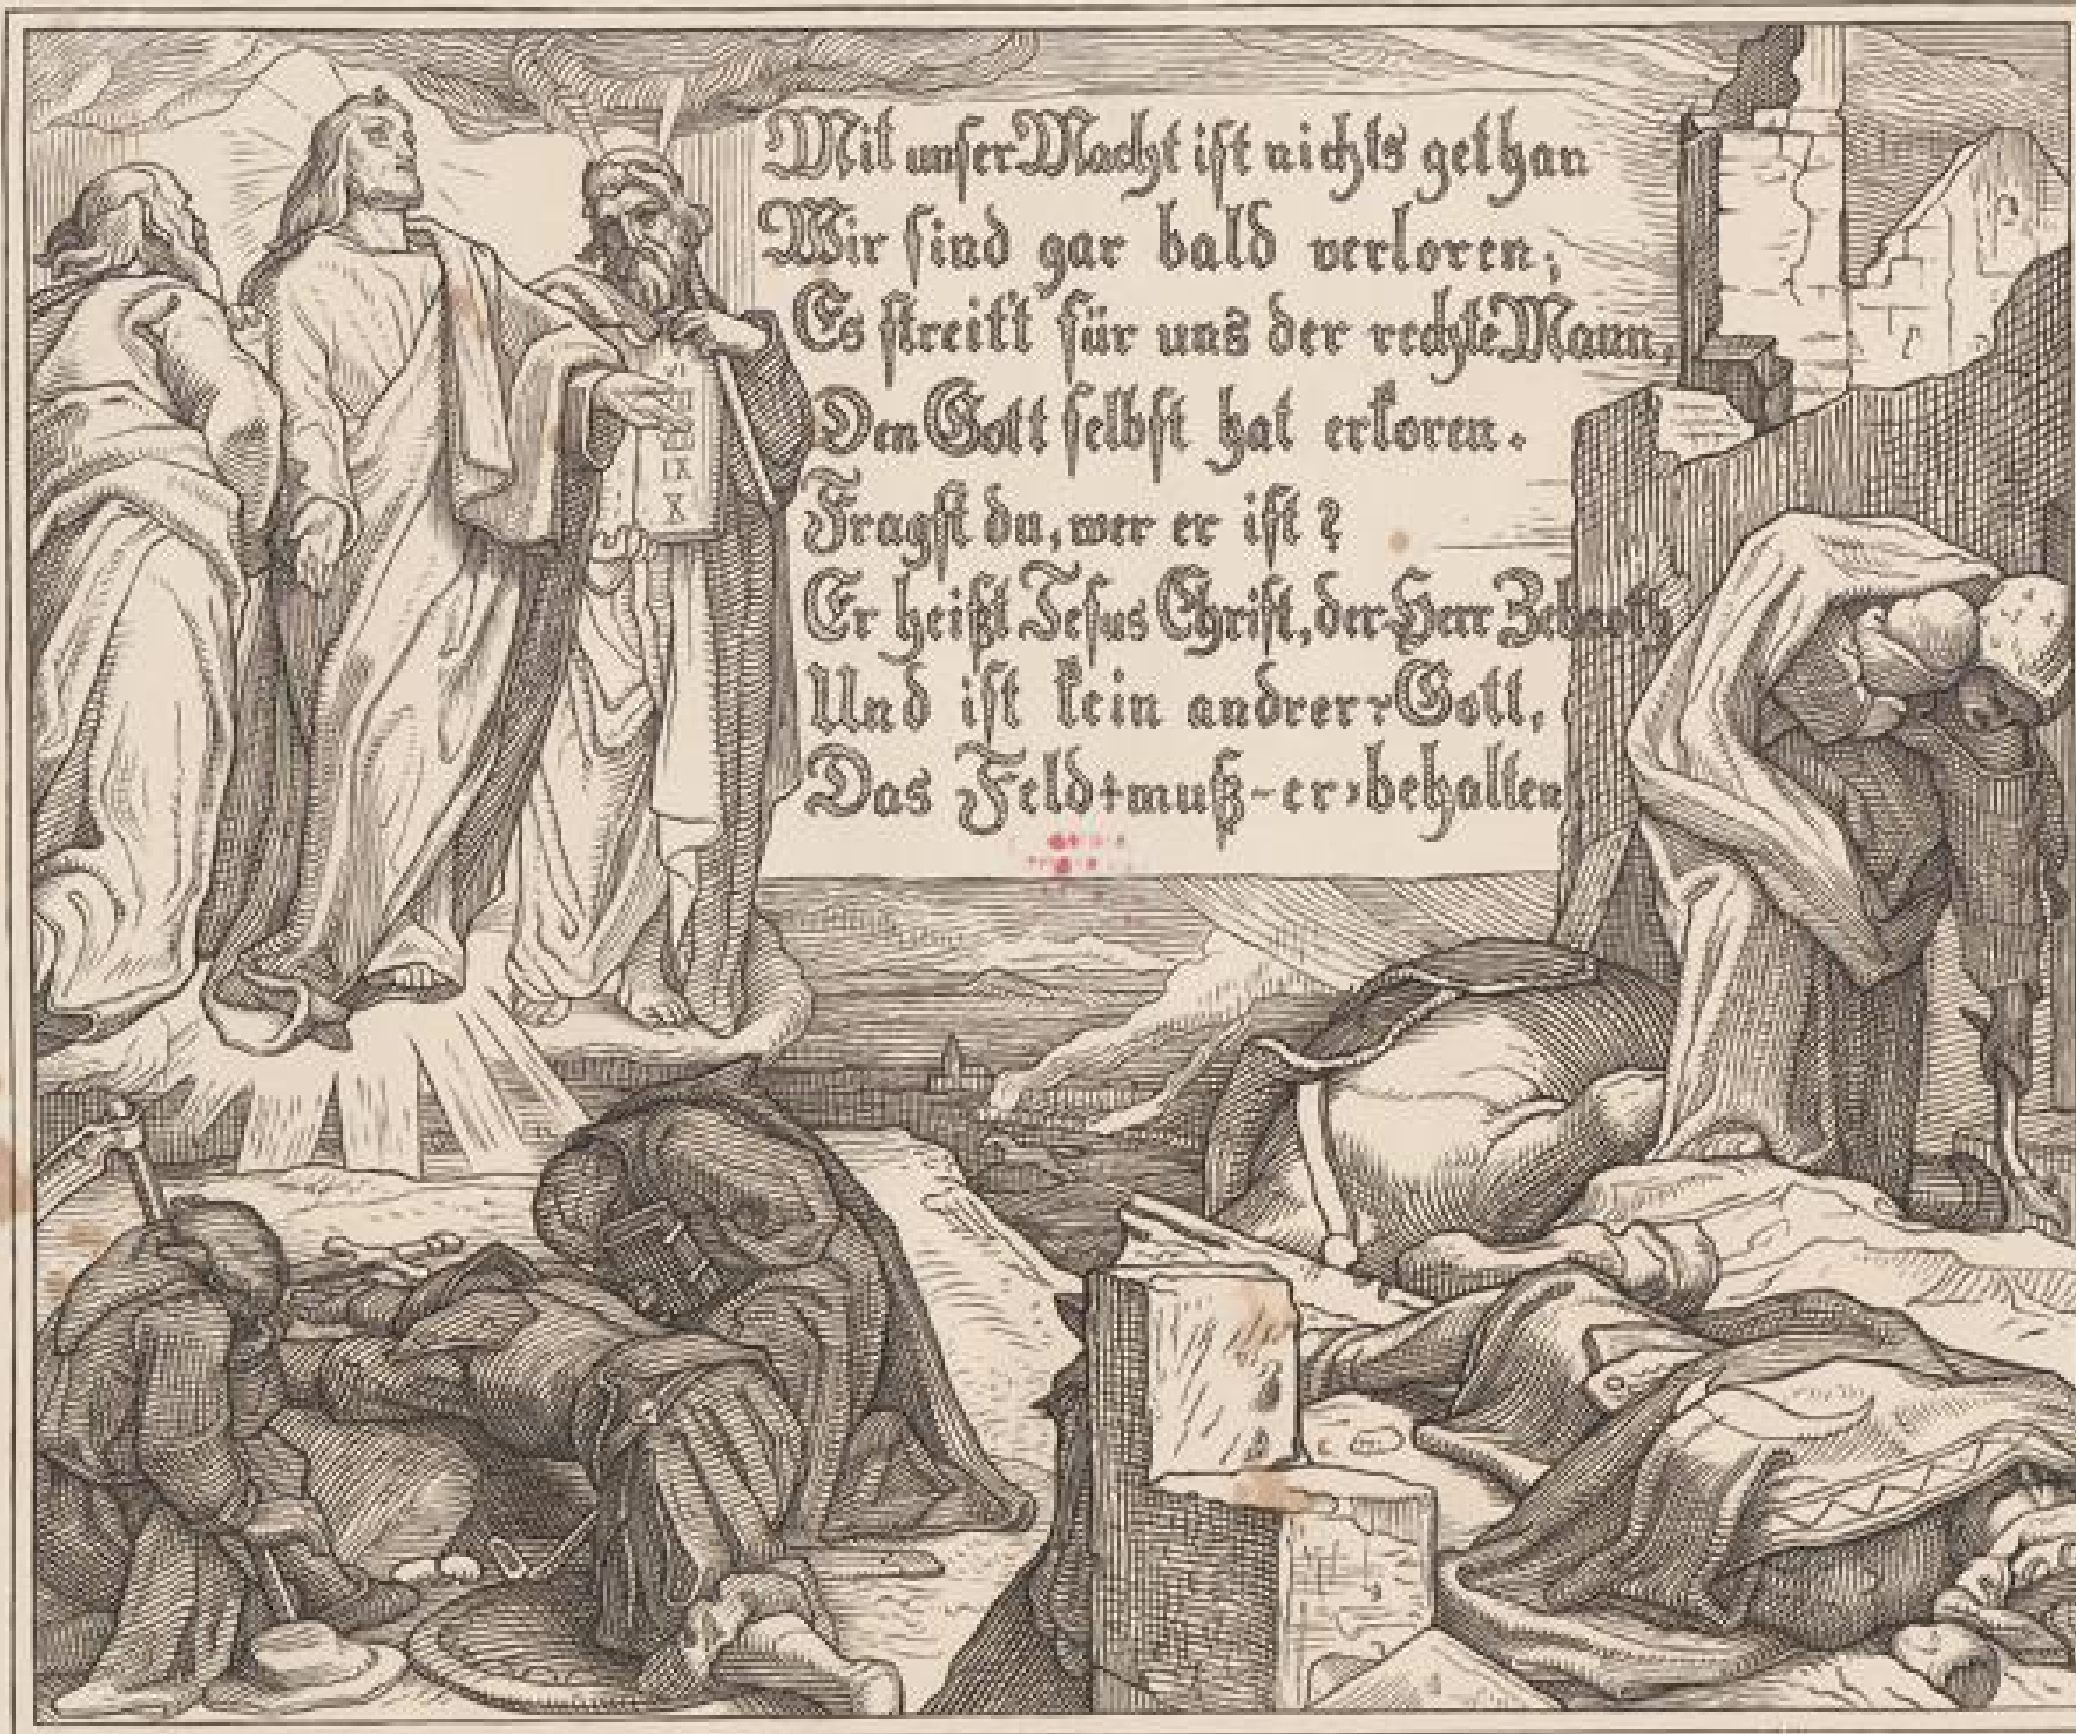 Mit unser Macht ist nichts gethan
Wir sind gar bald verloren;
Es streitt für uns der rechte Mann,
Den Gott selbst hat erkoren.
Fragst du, wer er ist?
Er heißt Jesus Christ, der Herr Zebaoth
Und ist kein andrer Gott,
Das Feld muß er behalten
VI
IX
X